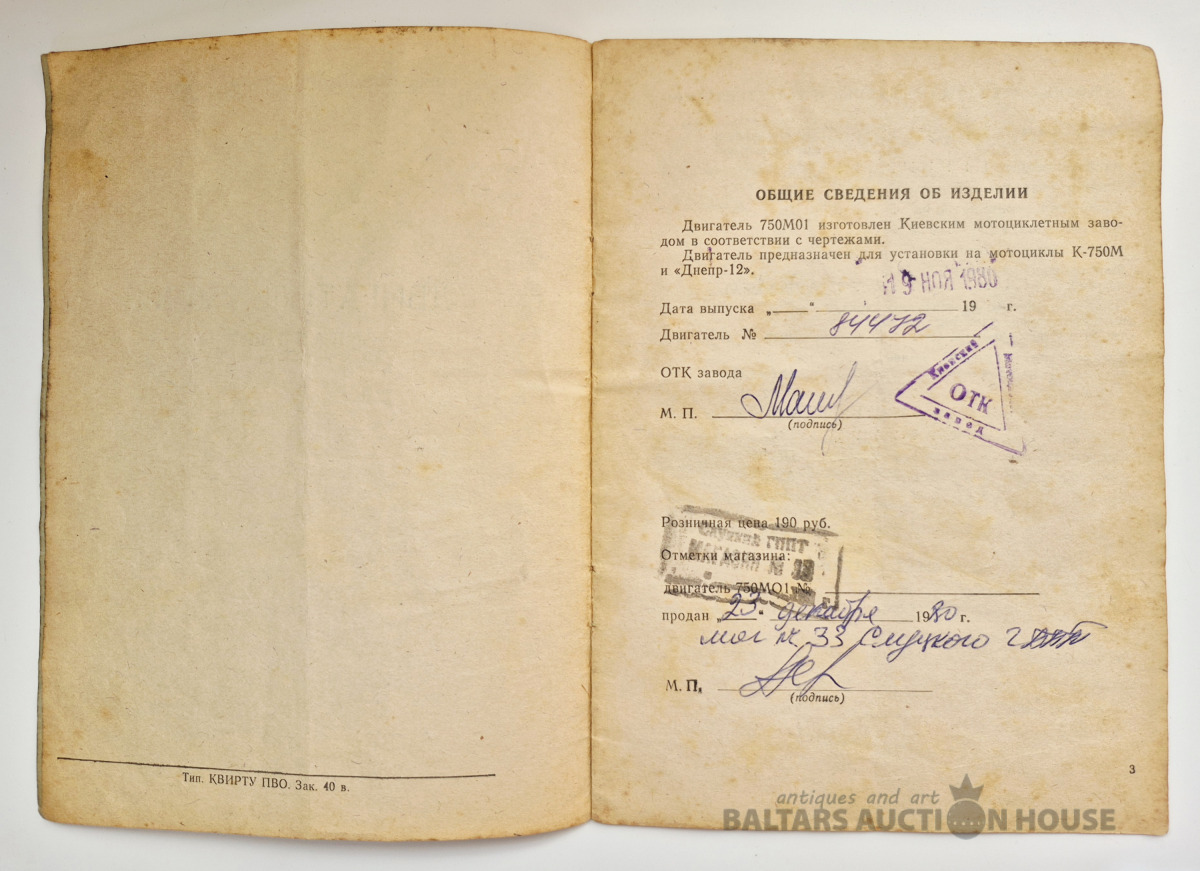 Тип. КВИРТУ ПВО. Зак. 40 в.
ОБЩИЕ СВЕДЕНИЯ ОБ ИЗДЕЛИИ
Двигатель 750М01 изготовлен Киевским мотоциклетным заво-
дом в соответствии с чертежами.
Двигатель предназначен для установки на мотоциклы К-750М
и «Днепр-12».
9 НОЯ 1980
Дата выпуска „ “ 19 г.
Двигатель № 84472
ОТК завода
Киевский
ОТК
завод
М. П.
(подпись)
Розничная цена 190 руб.
Слуцкий ГППТ
МАГАЗИН №
Отметки магазина:
двигатель 750МО1 №
продан „23“ декабря 1980 г.
маг № 33 Слуцкого
М. П.
(подпись)
3
antiques and art
BALTARS AUCTION HOUSE